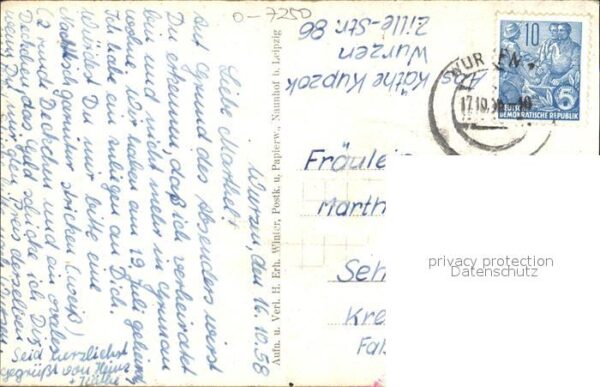 o-7250
Wurzen, den 16.10.58
Liebe Marthel!
Auf Grund des Absenders wirst
Du ersehen, daß ich verheiratet
bin und nicht mehr in
wohne. Wir haben am 19. Juli geheiratet.
Ich habe ein Anliegen an Dich.
Würdest Du mir bitte eine
stricken (weiß)
(2 rund Deckchen und ein ovales
Deckchen), das Geld schicke ich Dir,
wenn Du Preis derselben
Seid herzlichst
gegrüßt von Heinz
+ Käthe
Aufn. u. Verl. H. Erh. Winter, Postk. u. Papierw., Naunhof b. Leipzig
Abs.
Käthe Kupzok
Wurzen
Zille-Str. 86
10
5
DEUTSCHE
DEMOKRATISCHE REPUBLIK
WURZEN
17.10.58
Fräulein
Marth
Seh
Kre
Fal
privacy protection
Datenschutz